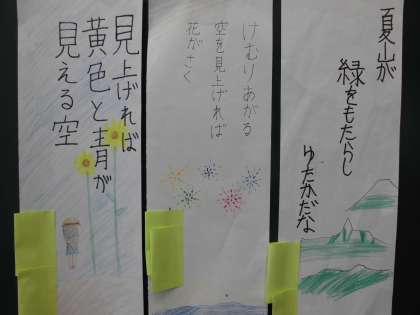 夏山が
緑をもたらし
ゆたかだな
けむりあがる
空を見上げれば
花がさく
見上げれば
黄色と青が
見える空